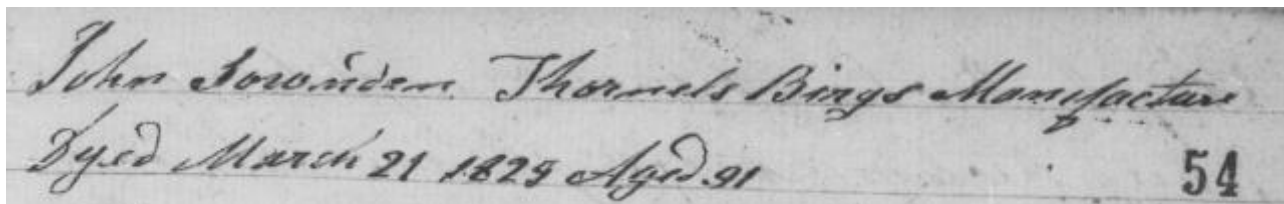 John Sownden Thornels Bings Manufacture
Dyed March 21 1825 Aged 91
54